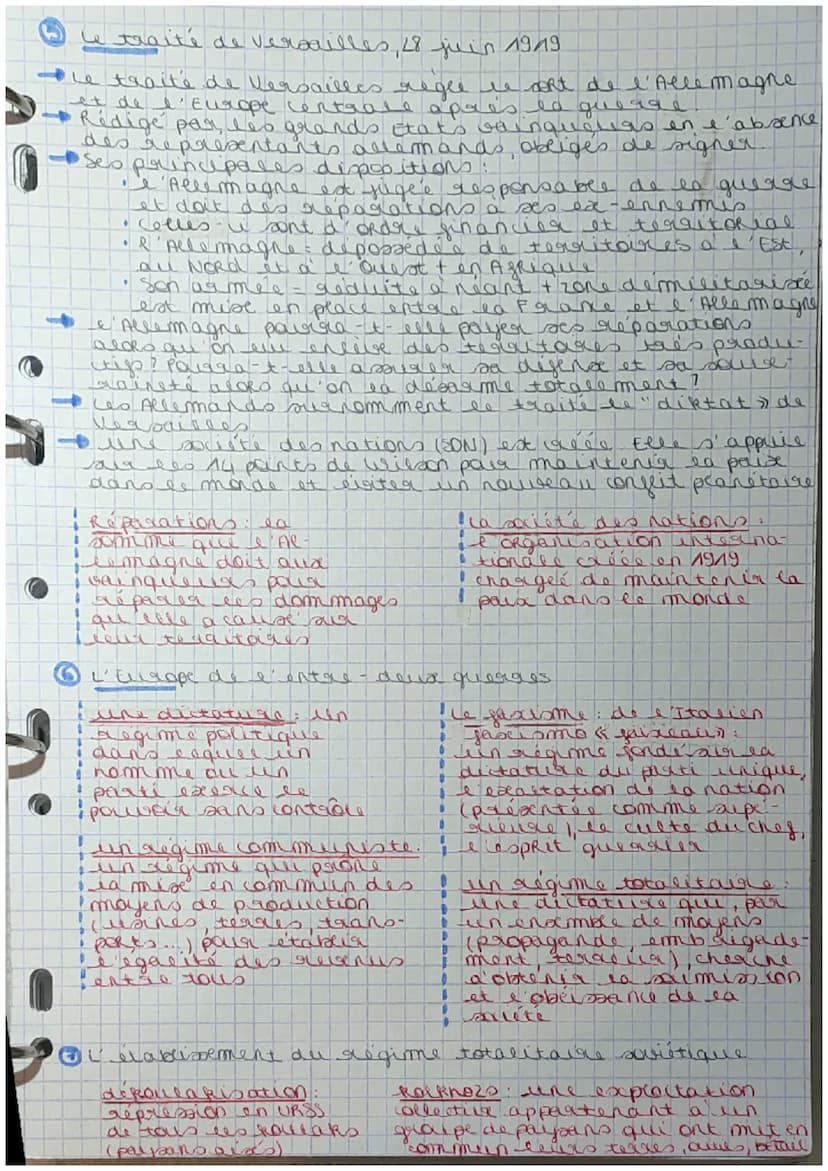 5 Le traité de Versailles, 28 juin 1919
→ Le traité de Versailles règle le sort de l'Allemagne
et de l'Europe centrale après la guerre.
→ Rédigé par les grands Etats vainqueurs en l'absence
des représentants allemands, obligés de signer.
→ Ses principales dispositions :
• l'Allemagne est jugée responsable de la guerre
et doit des réparations à ses ex-ennemis
• Celles-ci sont d'ordre financier et territorial
• l'Allemagne = dépossédée de territoires à l'Est,
au Nord et à l'Ouest + en Afrique
• Son armée = réduite à néant + zone démilitarisée
est mise en place entre la France et l'Allemagne
→ l'Allemagne pourra-t-elle payer ses réparations
alors qu'on lui enlève des territoires très produc-
tifs ? Pourra-t-elle assurer sa défense et sa souve-
raineté alors qu'on la désarme totalement ?
→ Les Allemands surnomment le traité le "diktat» de
Versailles.
→ Une société des nations (SDN) est créée. Elle s'appuie
sur les 14 points de Wilson pour maintenir la paix
dans le monde et éviter un nouveau conflit planétaire
Réparations : la
somme que l'Al-
lemagne doit aux
vainqueurs pour
réparer les dommages
qu'elle a causé sur
leur territoires
La société des nations :
l'organisation interna-
tionale créée en 1919
chargée de maintenir la
paix dans le monde
6 L'Europe de l'entre-deux guerres
Une dictature : Un
régime politique
dans lequel un
homme ou un
parti exerce le
pouvoir sans contrôle
un régime communiste :
un régime qui prône
la mise en commun des
moyens de production
(usines, terres, trans-
ports...) pour établir
l'égalité des revenus
entre tous
Le fascisme : de l'Italien
fascismo « faisceau» :
un régime fondé sur la
dictature du parti unique,
l'exaltation de la nation
(présentée comme supé-
rieure), le culte du chef,
l'esprit guerrier
un régime totalitaire :
une dictature qui, par
un ensemble de moyens
(propagande, embrigade-
ment, terreur), cherche
à obtenir la soumission
et l'obéissance de la
société
7 L'établissement du régime totalitaire soviétique
dékoulakisation :
répression en URSS
de tous les koulaks
(paysans aisés)
Kolkhozs : une exploitation
collective appartenant à un
groupe de paysans qui ont mit en
commun leurs terres, bétail